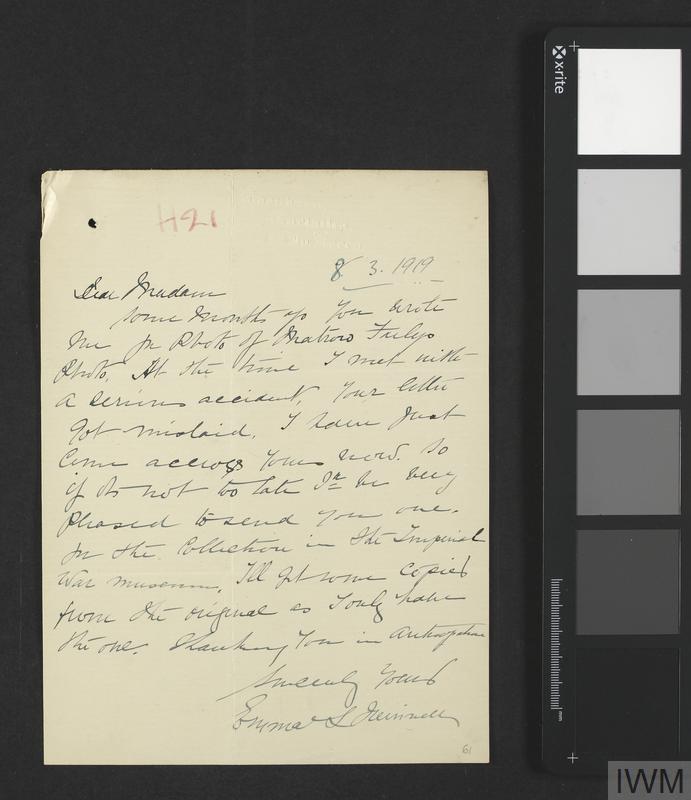 H21
8 3. 1919
Dear Madam
some months ago you wrote
me for Photo of Matron
Photo. At the time I met with
a serious accident, Your letter
got mislaid. I have Just
Come across Yours now. So
if its not too late I'll be very
Pleased to send you one.
for the Collection in the Imperial
War museum, I'll get some copies
from the original as I only have
the one. Thanking You in Anticipation
Sincerely Yours
Emma L
61
x-rite
mm
IWM